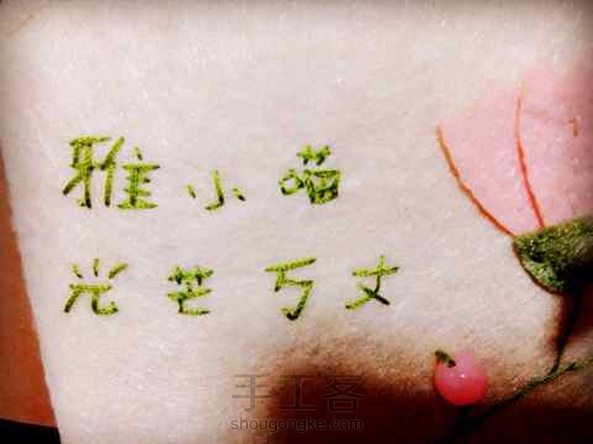 雅小喵
光芒丂丈
手工客
shougongke.com